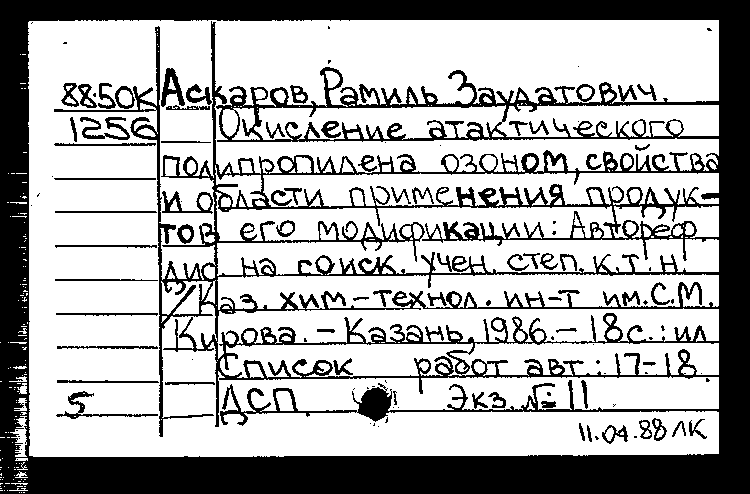 88-50К Аскаров, Рамиль Заудатович.
1256 Окисление атактического
полипропилена озоном, свойства
и области применения продук-
тов его модификации: Автореф.
дис. на соиск. учен. степ. к.т.н.
/Каз. хим.-технол. ин-т им. С.М.
Кирова. - Казань, 1986. - 18с.: ил
Список работ авт.: 17-18.
5 ДСП. Экз. № 11
11.04.88 ЛК